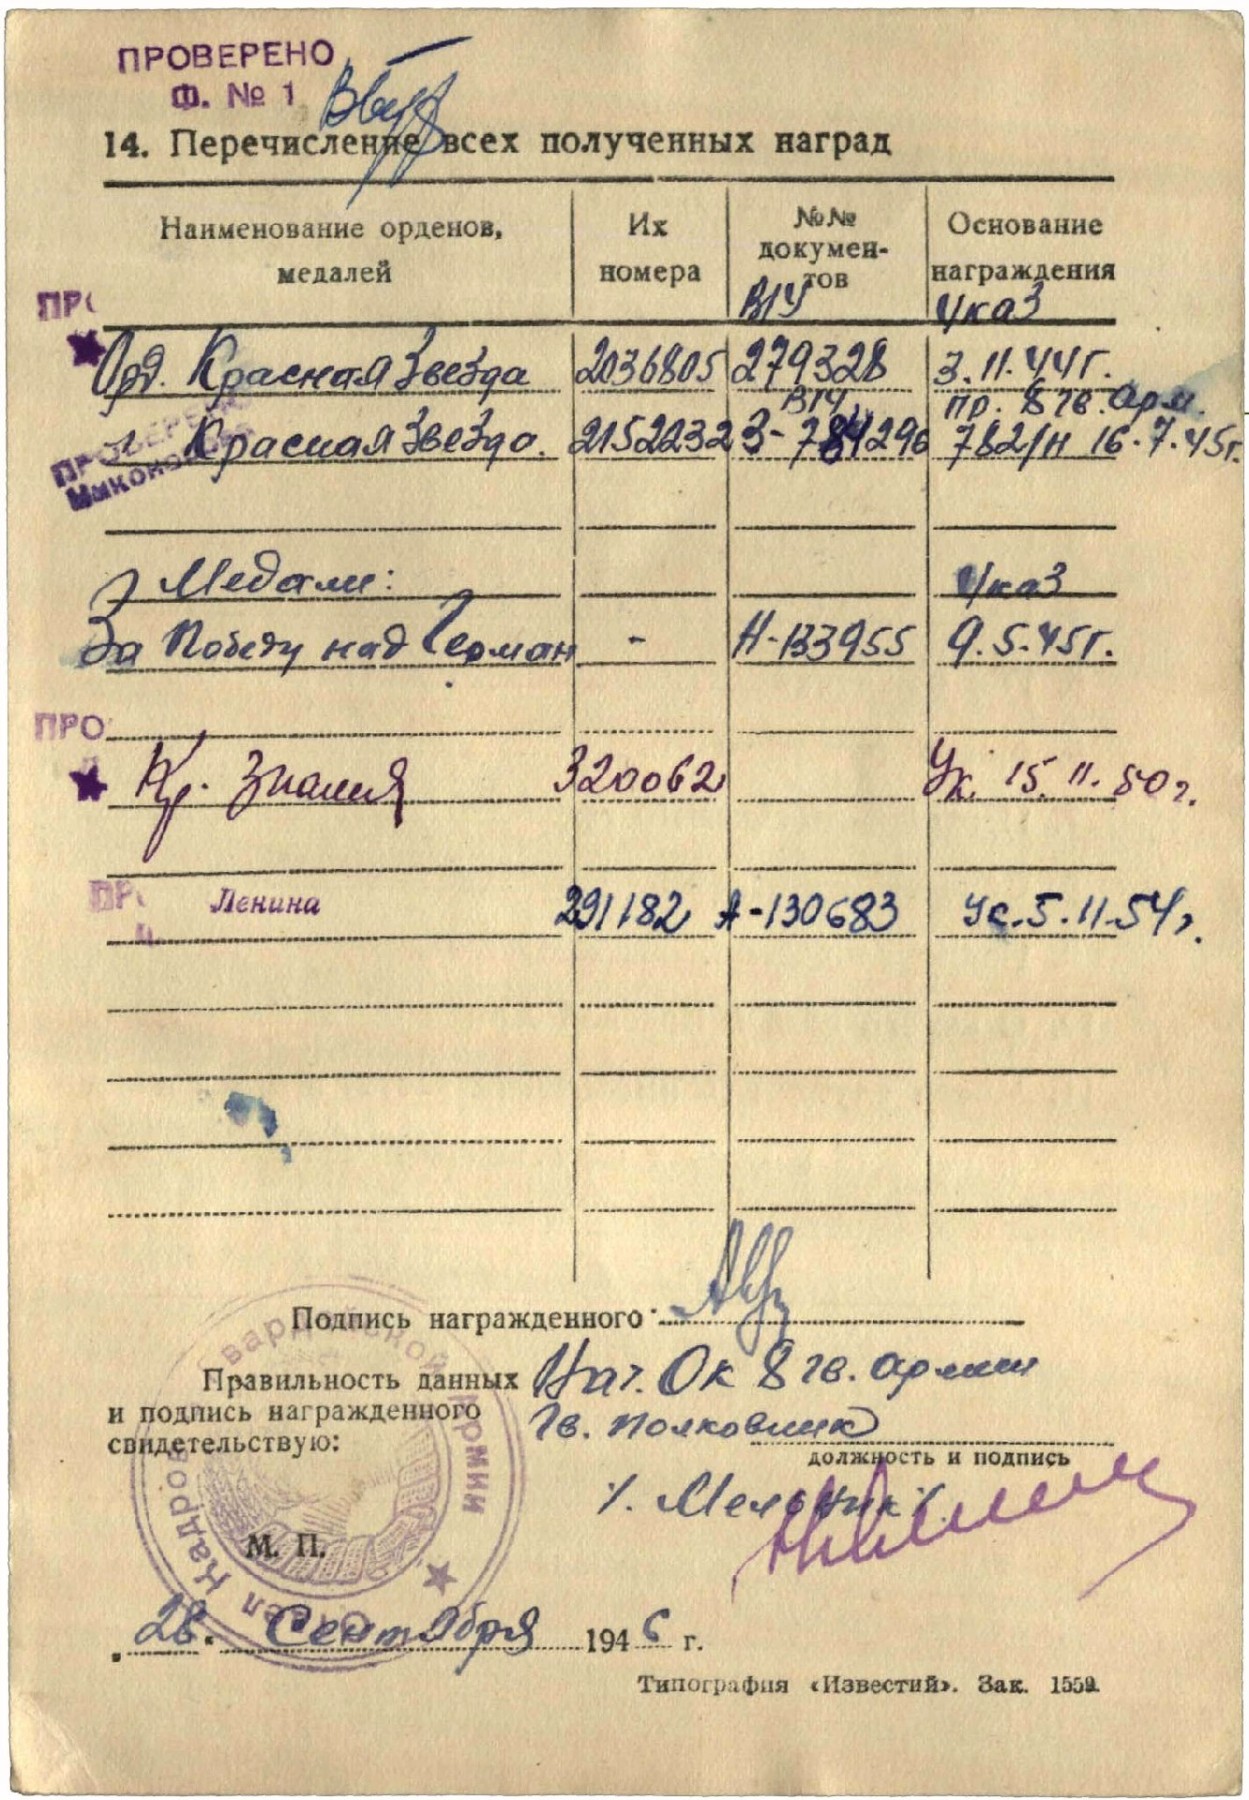 ПРОВЕРЕНО
Ф. № 1
14. Перечисление всех полученных наград
Наименование орденов, медалей
Их номера
№№ документов
Основание награждения
ВПУ Указ
Орд. Красная Звезда 2036805 279328 3.11.44г.
ВПУ пр. 8 гв. Арм.
ПРОВЕРЕНО
" Красная Звезда. 2152232 З-784296 782/н 16.7.45г.
Медали: Указ
За Победу над Герман - Н-133955 9.5.45г.
ПРО
Кр. Знамя 320062 Ук. 15.11.50г.
Ленина 291182 А-130683 Ук. 5.11.54г.
Подпись награжденного
Правильность данных
и подпись награжденного
свидетельствую:
Нач. Ок 8 гв. армии
Гв. полковник
должность и подпись
/. Мельник /.
Гвардейской Армии
Отдел Кадров
М. П.
„28" Сентября 1946 г.
Типография «Известий». Зак. 1559.